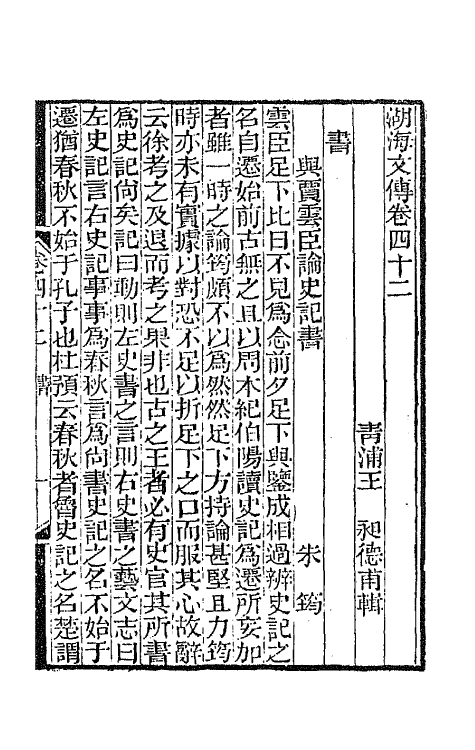 湖海文傳卷四十二
青浦王　昶德甫輯
書
與賈雲臣論史記書　朱　筠
雲臣足下比日不見爲念前夕足下與鑒成相過辨史記之
名自遷始前古無之且以周本紀伯陽讀史記爲遷所妄加
者雖一時之論筠頗不以爲然然足下方持論甚堅且力筠
時亦未有實據以對恐不足以折足下之口而服其心故辭
云徐考之及退而考之果非也古之王者必有史官其所書
爲史記尙矣記曰動則左史書之言則右史書之藝文志曰
左史記言右史記事事爲春秋言爲尙書史記之名不始于
遷猶春秋不始于孔子也杜預云春秋者魯史記之名楚謂
卷四十二　書　一